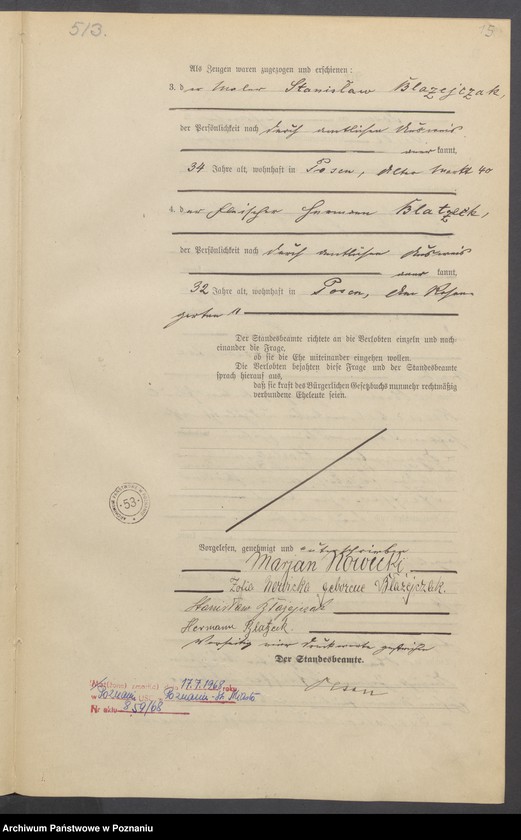 513.
15
Als Zeugen waren zugezogen und erschienen:
3. der Maler Stanisław Błazejczak,
der Persönlichkeit nach durch amtlichen Ausweis
anerkannt,
34 Jahre alt, wohnhaft in Posen, Alter Markt 40
4. der Fleischer Hermann Blatzeck,
der Persönlichkeit nach durch amtlichen Ausweis
anerkannt,
32 Jahre alt, wohnhaft in Posen, Am Rosen-
garten
Der Standesbeamte richtete an die Verlobten einzeln und nach-
einander die Frage,
ob sie die Ehe miteinander eingehen wollen.
Die Verlobten bejahten diese Frage und der Standesbeamte
sprach hierauf aus,
daß sie kraft des Bürgerlichen Gesetzbuchs nunmehr rechtmäßig
verbundene Eheleute seien.
ARCHIWUM PAŃSTWOWE W POZNANIU
53
Vorgelesen, genehmigt und unterschrieben
Marjan Nowicki
Zofia Nowicka geborene Błażejczak.
Stanisław Błażejczak
Hermann
Vorseitig vier Druckworte gestrichen
Der Standesbeamte.
17.7.1968 roku
w Poznaniu USC Poznań-St. Miasto
Nr aktu 859/68
Archiwum Państwowe w Poznaniu